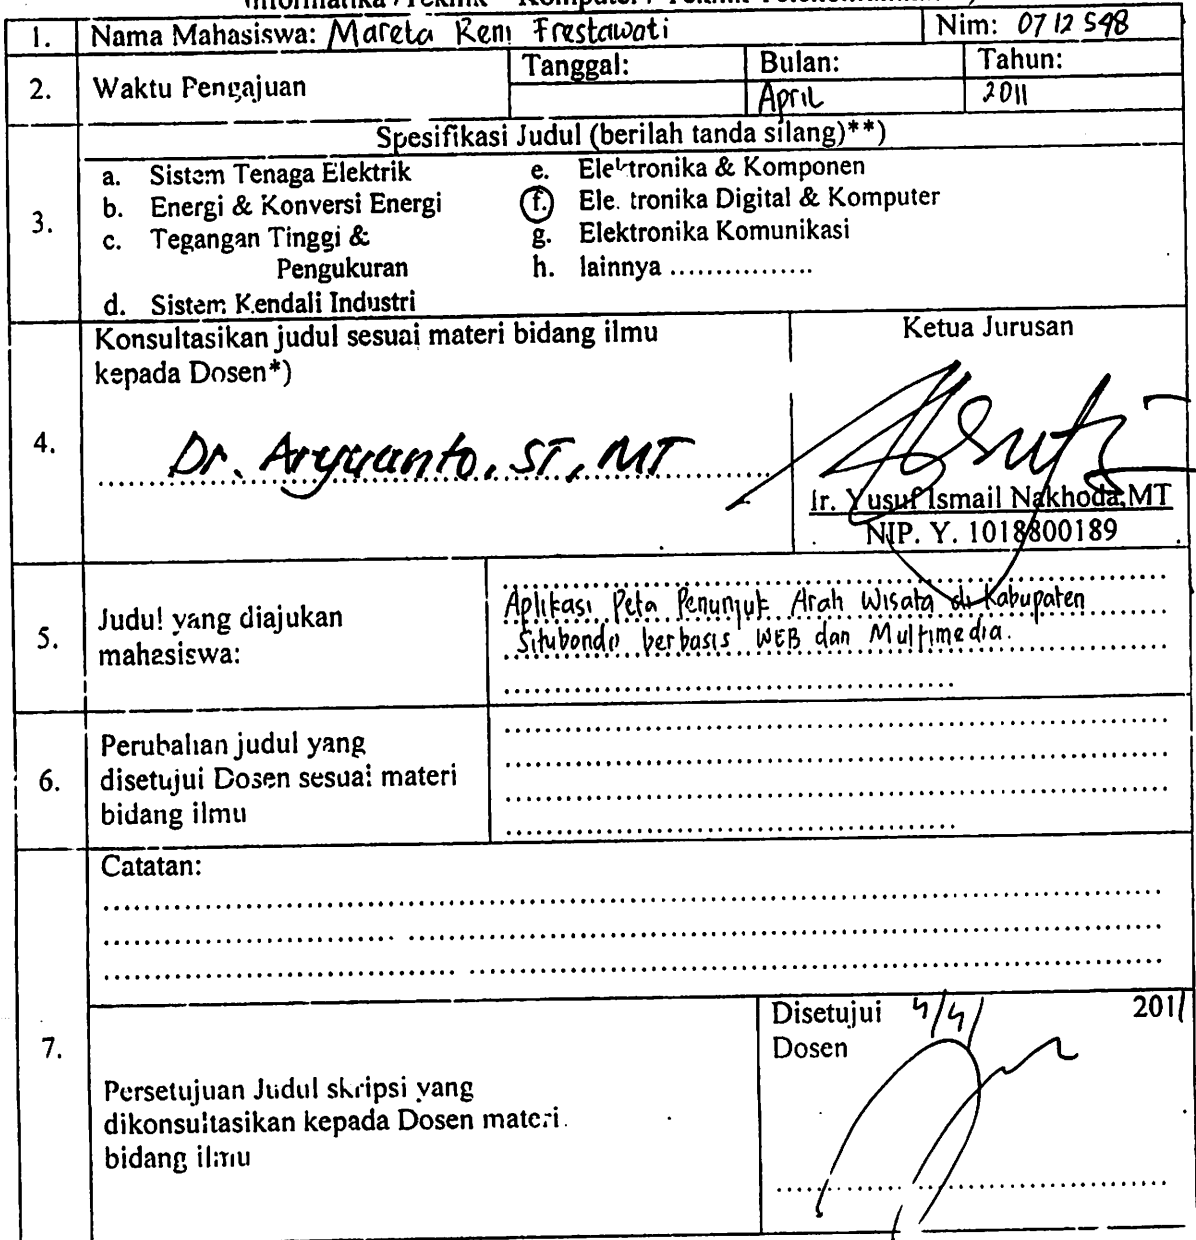 Informatika / Teknik Komputer / Teknik Telekomunikasi
1. Nama Mahasiswa: Mareta Reni Frestawati Nim: 0712598
2. Waktu Pengajuan Tanggal: Bulan: Tahun:
April 2011
Spesifikasi Judul (berilah tanda silang)**)
3.
a. Sistem Tenaga Elektrik
b. Energi & Konversi Energi
c. Tegangan Tinggi &
Pengukuran
d. Sistem Kendali Industri
e. Elektronika & Komponen
f. Elektronika Digital & Komputer
g. Elektronika Komunikasi
h. lainnya ................
4. Konsultasikan judul sesuai materi bidang ilmu
kepada Dosen*)
Dr. Aryuanto, ST, MT
Ketua Jurusan
Ir. Yusuf Ismail Nakhoda, MT
NIP. Y. 1018800189
5. Judul yang diajukan
mahasiswa:
Aplikasi Peta Penunjuk Arah Wisata di Kabupaten
Situbondo berbasis WEB dan Multimedia.
6. Perubahan judul yang
disetujui Dosen sesuai materi
bidang ilmu
7. Catatan:
Persetujuan Judul skripsi yang
dikonsultasikan kepada Dosen materi
bidang ilmu
Disetujui 4/4/ 2011
Dosen